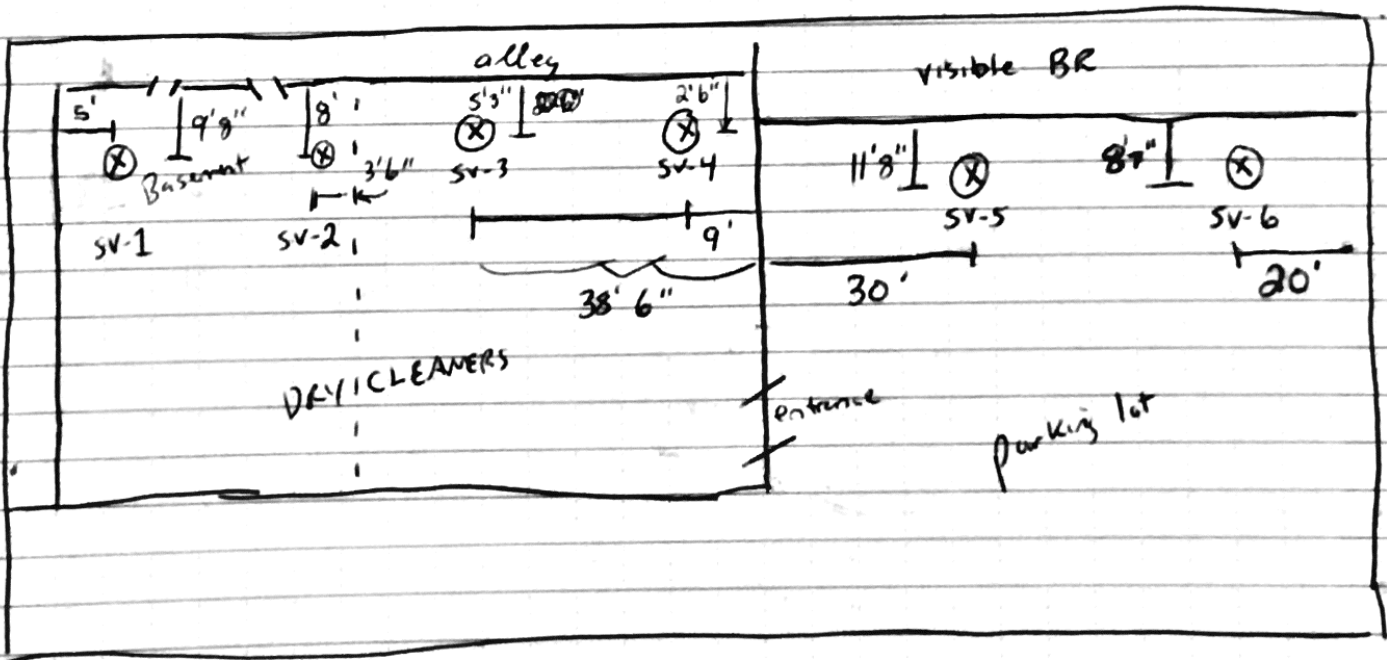 alley
visible BR
5'
9'8"
8'
5'3"
2'6"
Basement
3'6"
SV-3
SV-4
11'8"
8'7"
SV-1
SV-2
9'
SV-5
SV-6
38' 6"
30'
20'
DRY CLEANERS
entrance
parking lot